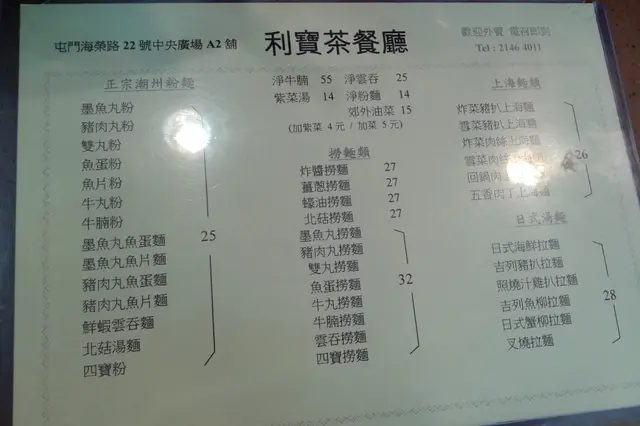 屯門海榮路 22 號中央廣場 A2 舖
利寶茶餐廳
歡迎外賣 電召即到
Tel : 2146 4011
正宗潮州粉麵
墨魚丸粉
豬肉丸粉
雙丸粉
魚蛋粉
魚片粉
牛丸粉
牛腩粉
墨魚丸魚蛋麵
墨魚丸魚片麵
豬肉丸魚蛋麵
豬肉丸魚片麵
鮮蝦雲吞麵
北菇湯麵
四寶粉
25
淨牛腩 55 淨雲吞 25
紫菜湯 14 淨粉麵 14
郊外油菜 15
(加紫菜 4 元 / 加菜 5 元)
撈麵類
炸醬撈麵 27
薑蔥撈麵 27
蠔油撈麵 27
北菇撈麵 27
墨魚丸撈麵
豬肉丸撈麵
雙丸撈麵
魚蛋撈麵 32
牛丸撈麵
牛腩撈麵
雲吞撈麵
四寶撈麵
上海麵類
炸菜豬扒上海麵
雪菜豬扒上海麵
炸菜肉絲上海麵
雪菜肉絲上海麵
26
回鍋肉上海麵
五香肉丁上海麵
日式湯麵
日式海鮮拉麵
吉列豬扒拉麵
照燒汁雞扒拉麵
吉列魚柳拉麵 28
日式蟹柳拉麵
叉燒拉麵